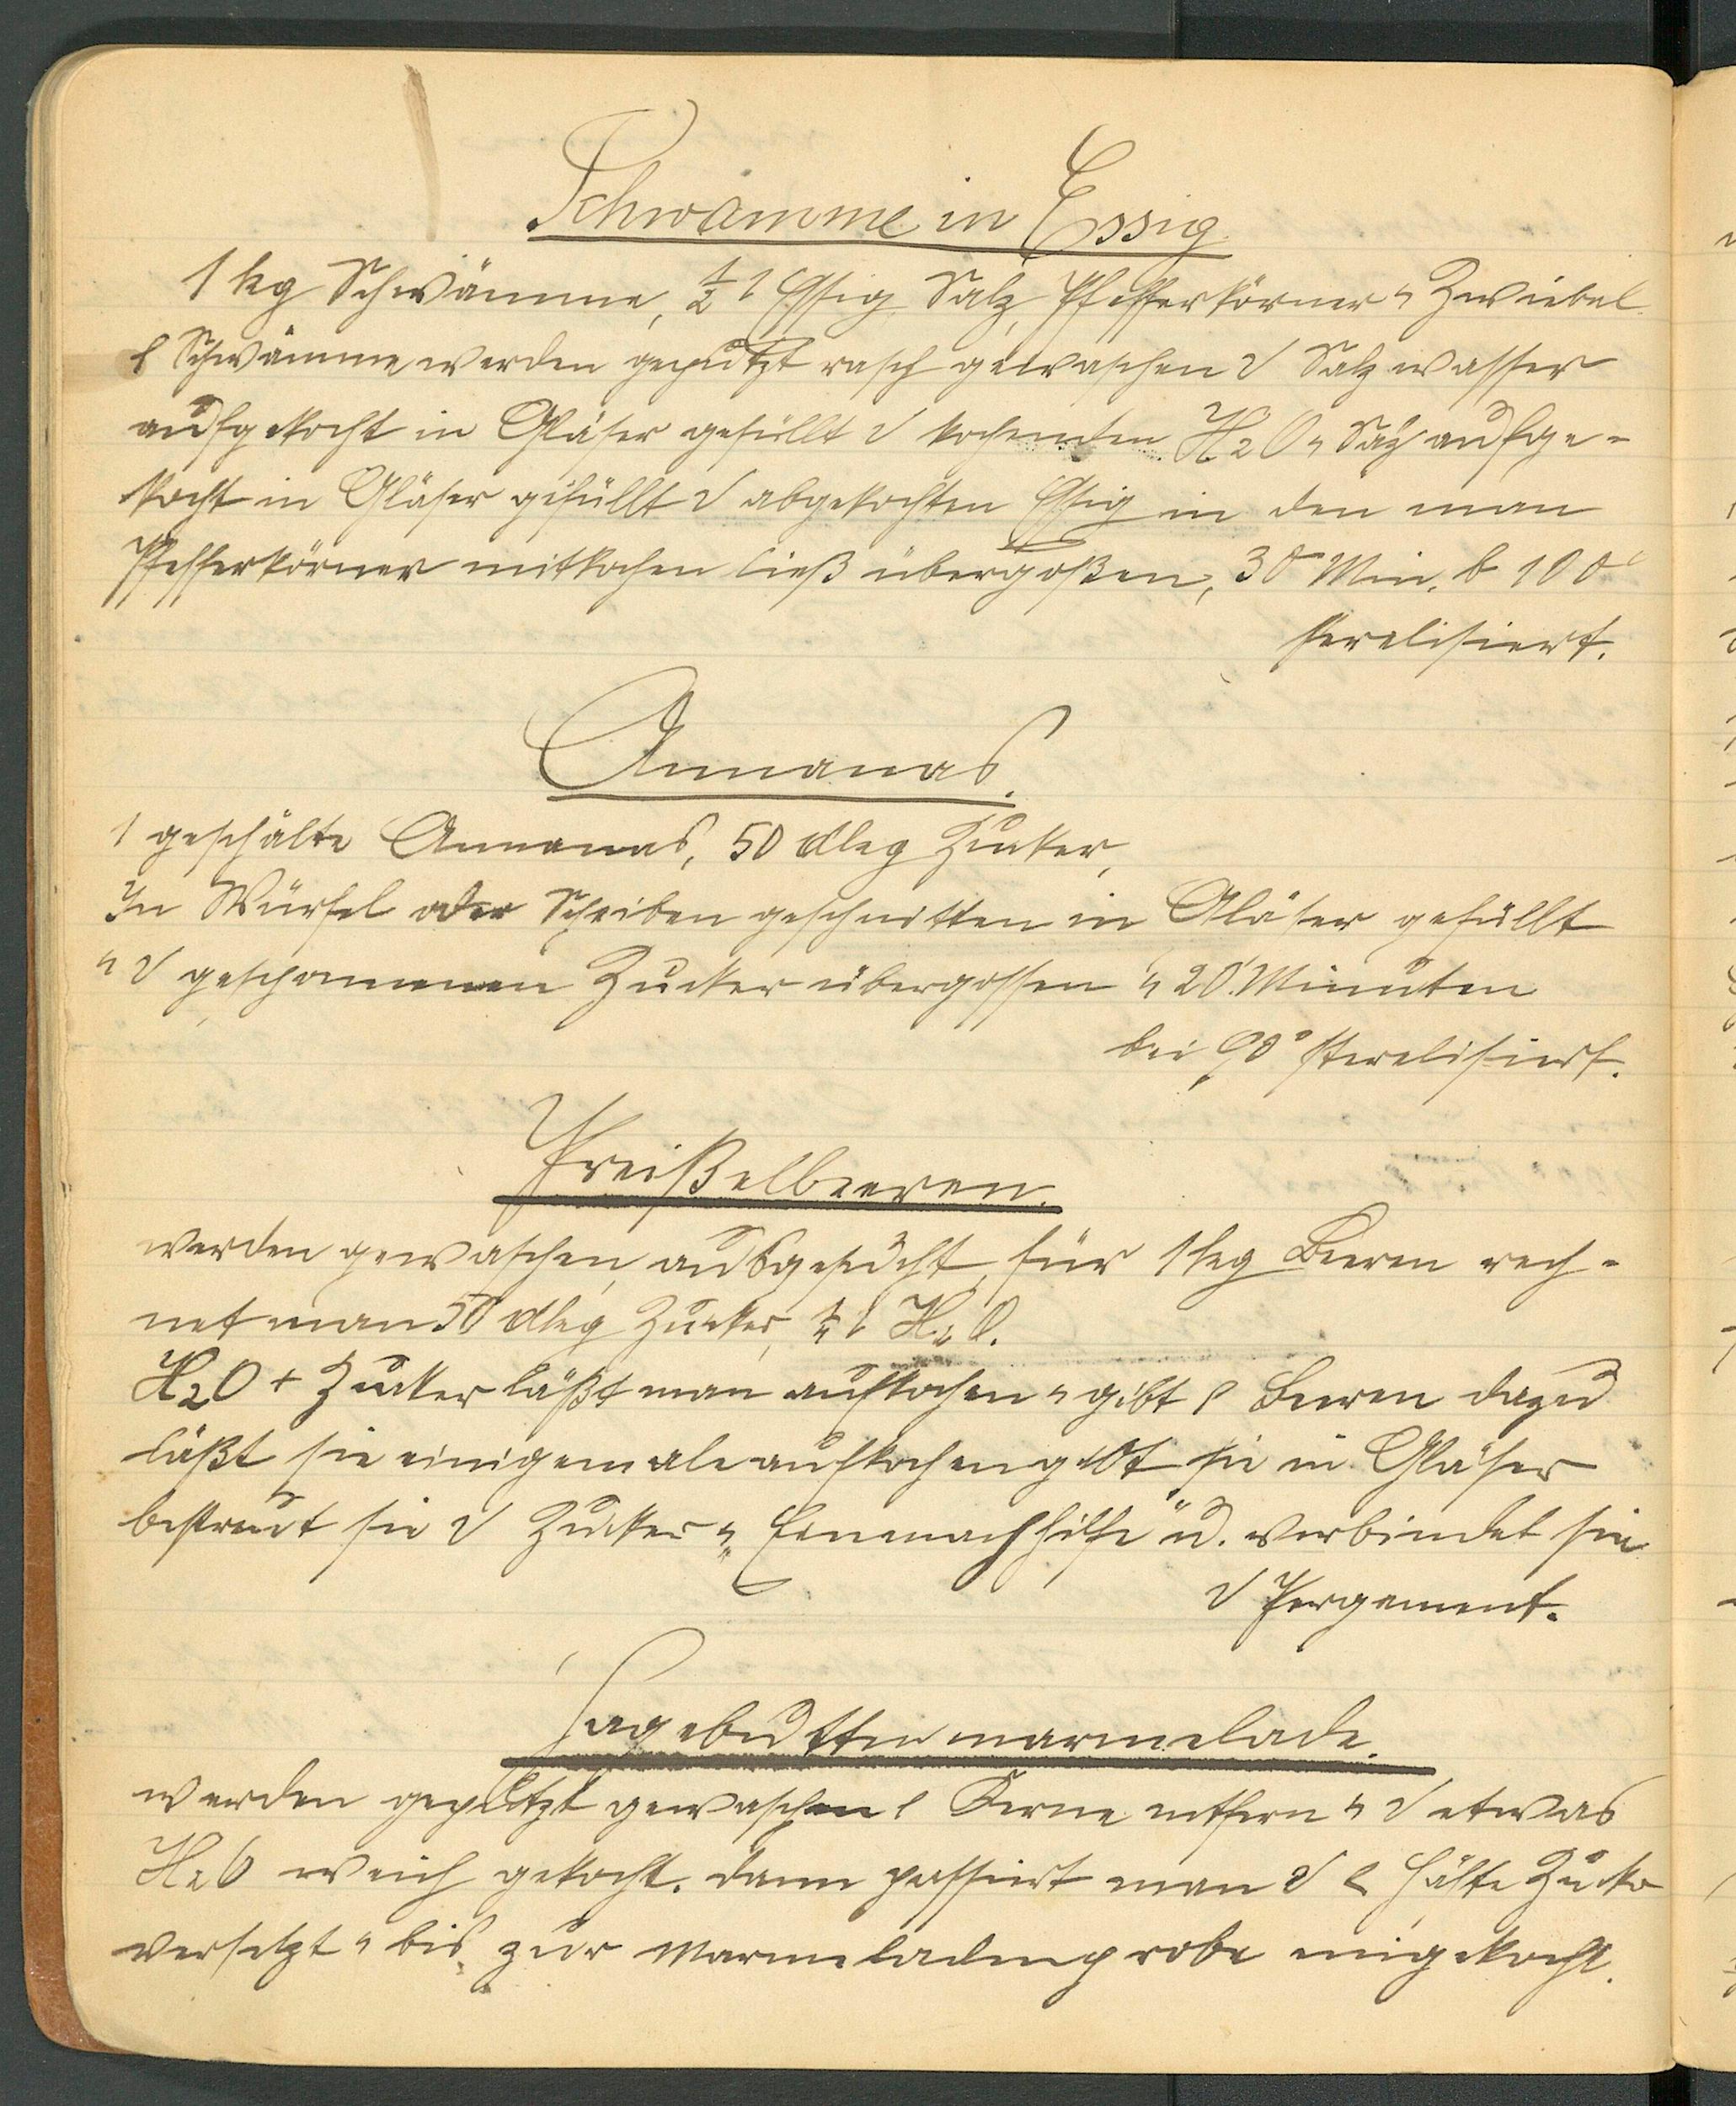 Schwämme in Essig
1 kg Schwämme, ½ l Essig Salz, Pfefferkörner u Zwiebel.
Schwämme werden geputzt rasch gewaschen Salzwasser
aufgekocht in Gläser gefüllt kochenden H2O u Salz aufge-
kocht in Gläser gefüllt abgekochten Essig in den man
Pfefferkörner mitkochen ließ übergoßen, 30 Min. b 100°
sterelisiert.
Annanas.
1 geschälte Annanas, 50 dkg Zucker,
In Würfel oder Scheiben geschnitten in Gläser gefüllt
u gesponnenen Zucker übergossen u 20 Minuten
bei 90° sterelisiert.
Preißelbeeren.
werden gewaschen, ausgesucht, für 1 kg Beeren rech-
net man 50 dkg Zucker, ¼ l H2O.
H2O + Zucker läßt man aufkochen u gibt Beeren dazu
läßt sie einigemale aufkochen gibt sie in Gläser
bestreut sie Zucker u "Einmachhilfe" u. verbindet sie
Pergament.
Hagebuttenmarmelade.
werden geputzt gewaschen Kerne entfern u etwas
H2O weich gekocht. dann passiert man Hälfte Zucker
versetzt u bis zur Marmeladenprobe eingekocht.